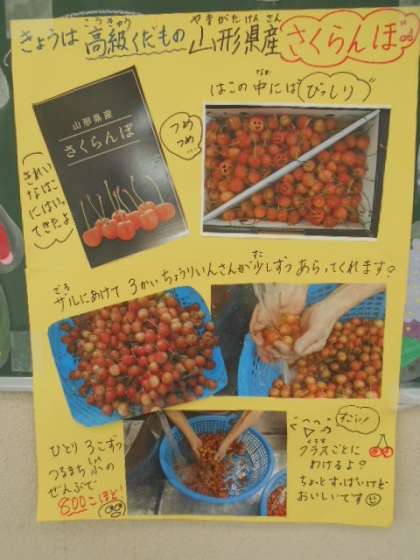 きょうは 高級くだもの 山形県産 さくらんぼ
こうきゅう やまがたけんさん
はこの中にはびっしり
なか
山形県産
さくらんぼ
つめ
つめ
きれい
なはこ
にはいっ
てきたよ
ザルにあけて 3かいちょうりいんさんが少しずつ あらってくれます?
すこ
ひとり 3こずつ
つるまち
ぜんぶで
800こほど
すごい
クラスごとに
わけるよ?
ちょっとすっぱいけど
おいしいです